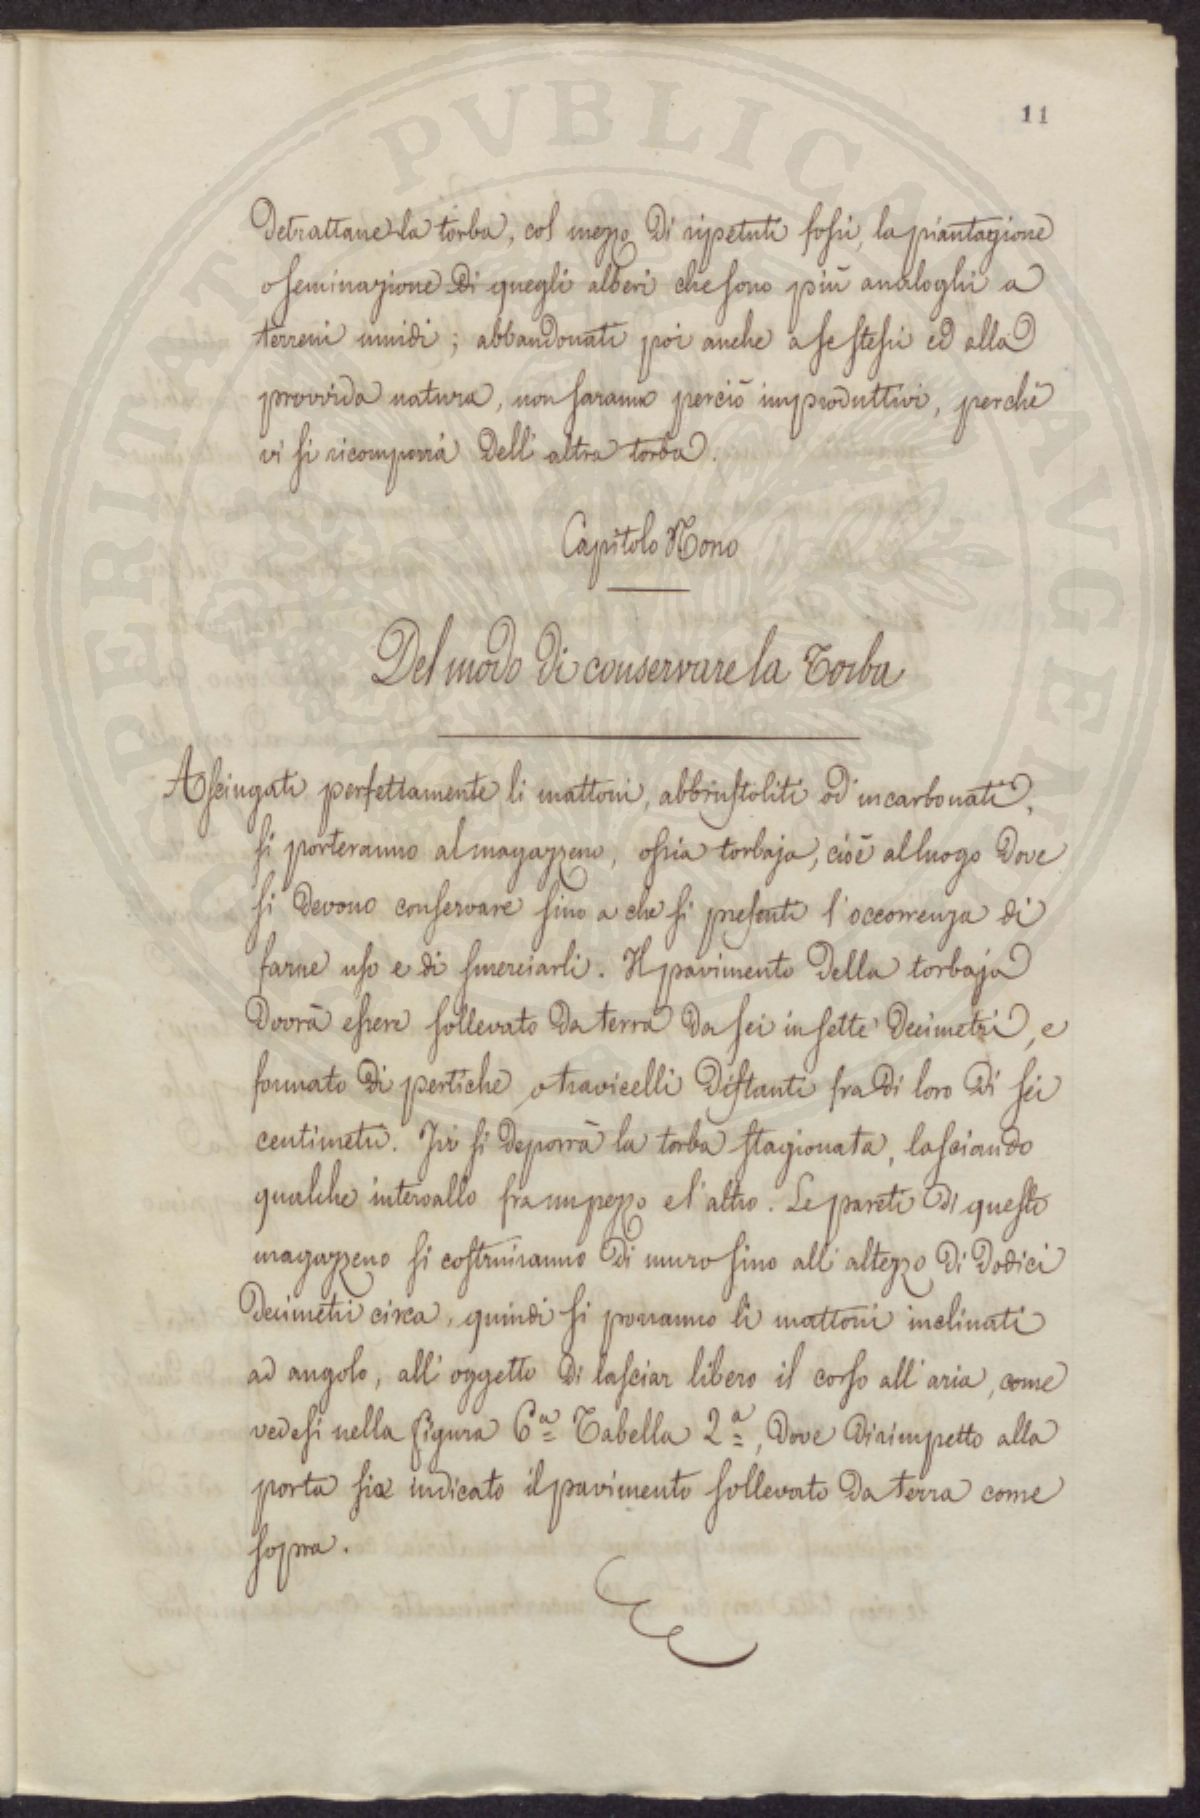 11
detrattane la torba, col mezzo di ripetuti fossi, la piantagione
o seminazione di quegli alberi che sono più analoghi a
terreni umidi; abbandonati poi anche a se stessi ed alla
provvida natura, non saranno perciò improduttivi, perchè
vi si ricomporrà dell'altra torba.
Capitolo Nono
Del modo di conservare la Torba
Asciugati perfettamente li mattoni, abbrustoliti od incarbonati,
si porteranno al magazzeno, ossia torbaja, cioè al luogo dove
si devono conservare sino a che si presenti l'occorrenza di
farne uso e di smerciarli. Il pavimento della torbaja
dovrà essere sollevato da terra da sei in sette decimetri, e
formato di pertiche, o travicelli distanti fra di loro di sei
centimetri. Ivi si deporrà la torba stagionata, lasciando
qualche intervallo fra un pezzo e l'altro. Le pareti di questo
magazzeno si costruiranno di muro sino all'altezzo di dodici
decimetri circa, quindi si porranno li mattoni inclinati
ad angolo, all'oggetto di lasciar libero il corso all'aria, come
vedesi nella figura 6ª Tabella 2ª, dove dirimpetto alla
porta sia indicato il pavimento sollevato da terra come
sopra.
PERITATI PVBLICAE AVGEN